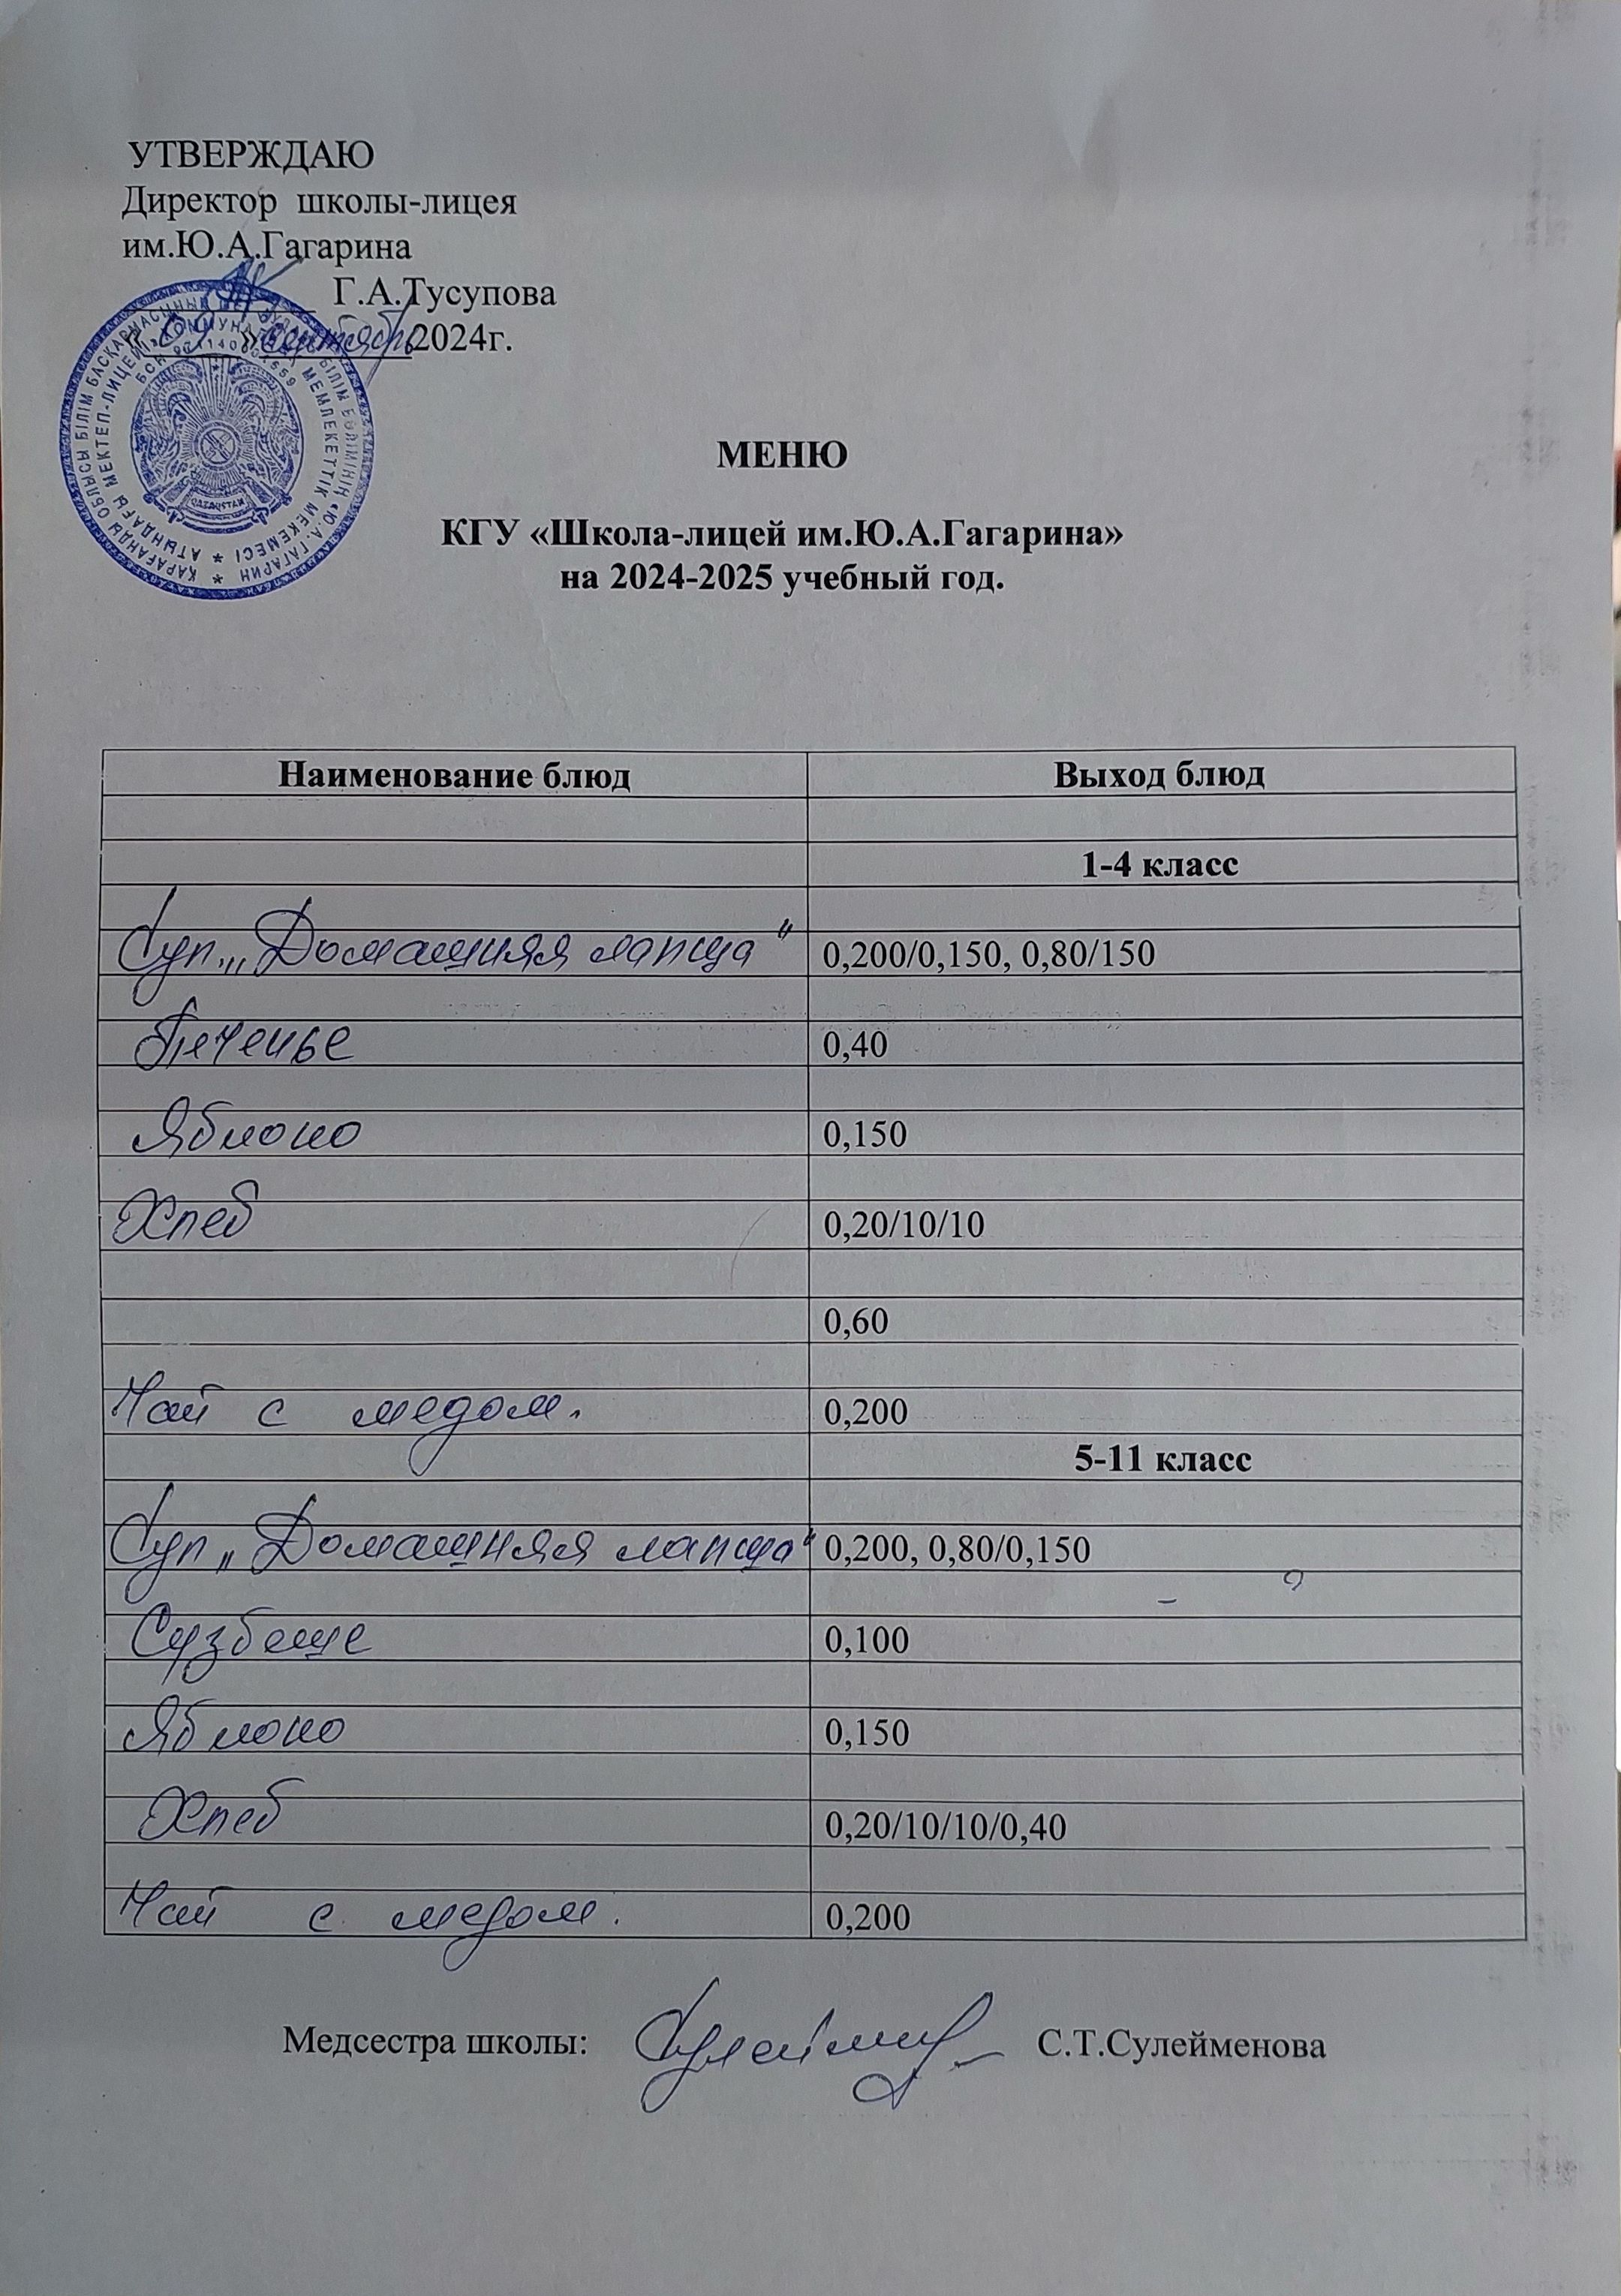 УТВЕРЖДАЮ
Директор школы-лицея
им.Ю.А.Гагарина
Г.А.Тусупова
«09» сентябрь 2024г.
МЕНЮ
КГУ «Школа-лицей им.Ю.А.Гагарина»
на 2024-2025 учебный год.
Наименование блюд Выход блюд
1-4 класс
Суп „Домашняя лапша" 0,200/0,150, 0,80/150
Печенье 0,40
Яблоко 0,150
Хлеб 0,20/10/10
0,60
Чай с медом. 0,200
5-11 класс
Суп „Домашняя лапша" 0,200, 0,80/0,150
0,100
Яблоко 0,150
Хлеб 0,20/10/10/0,40
Чай с медом. 0,200
Медсестра школы: С.Т.Сулейменова
QAZAQSTAN